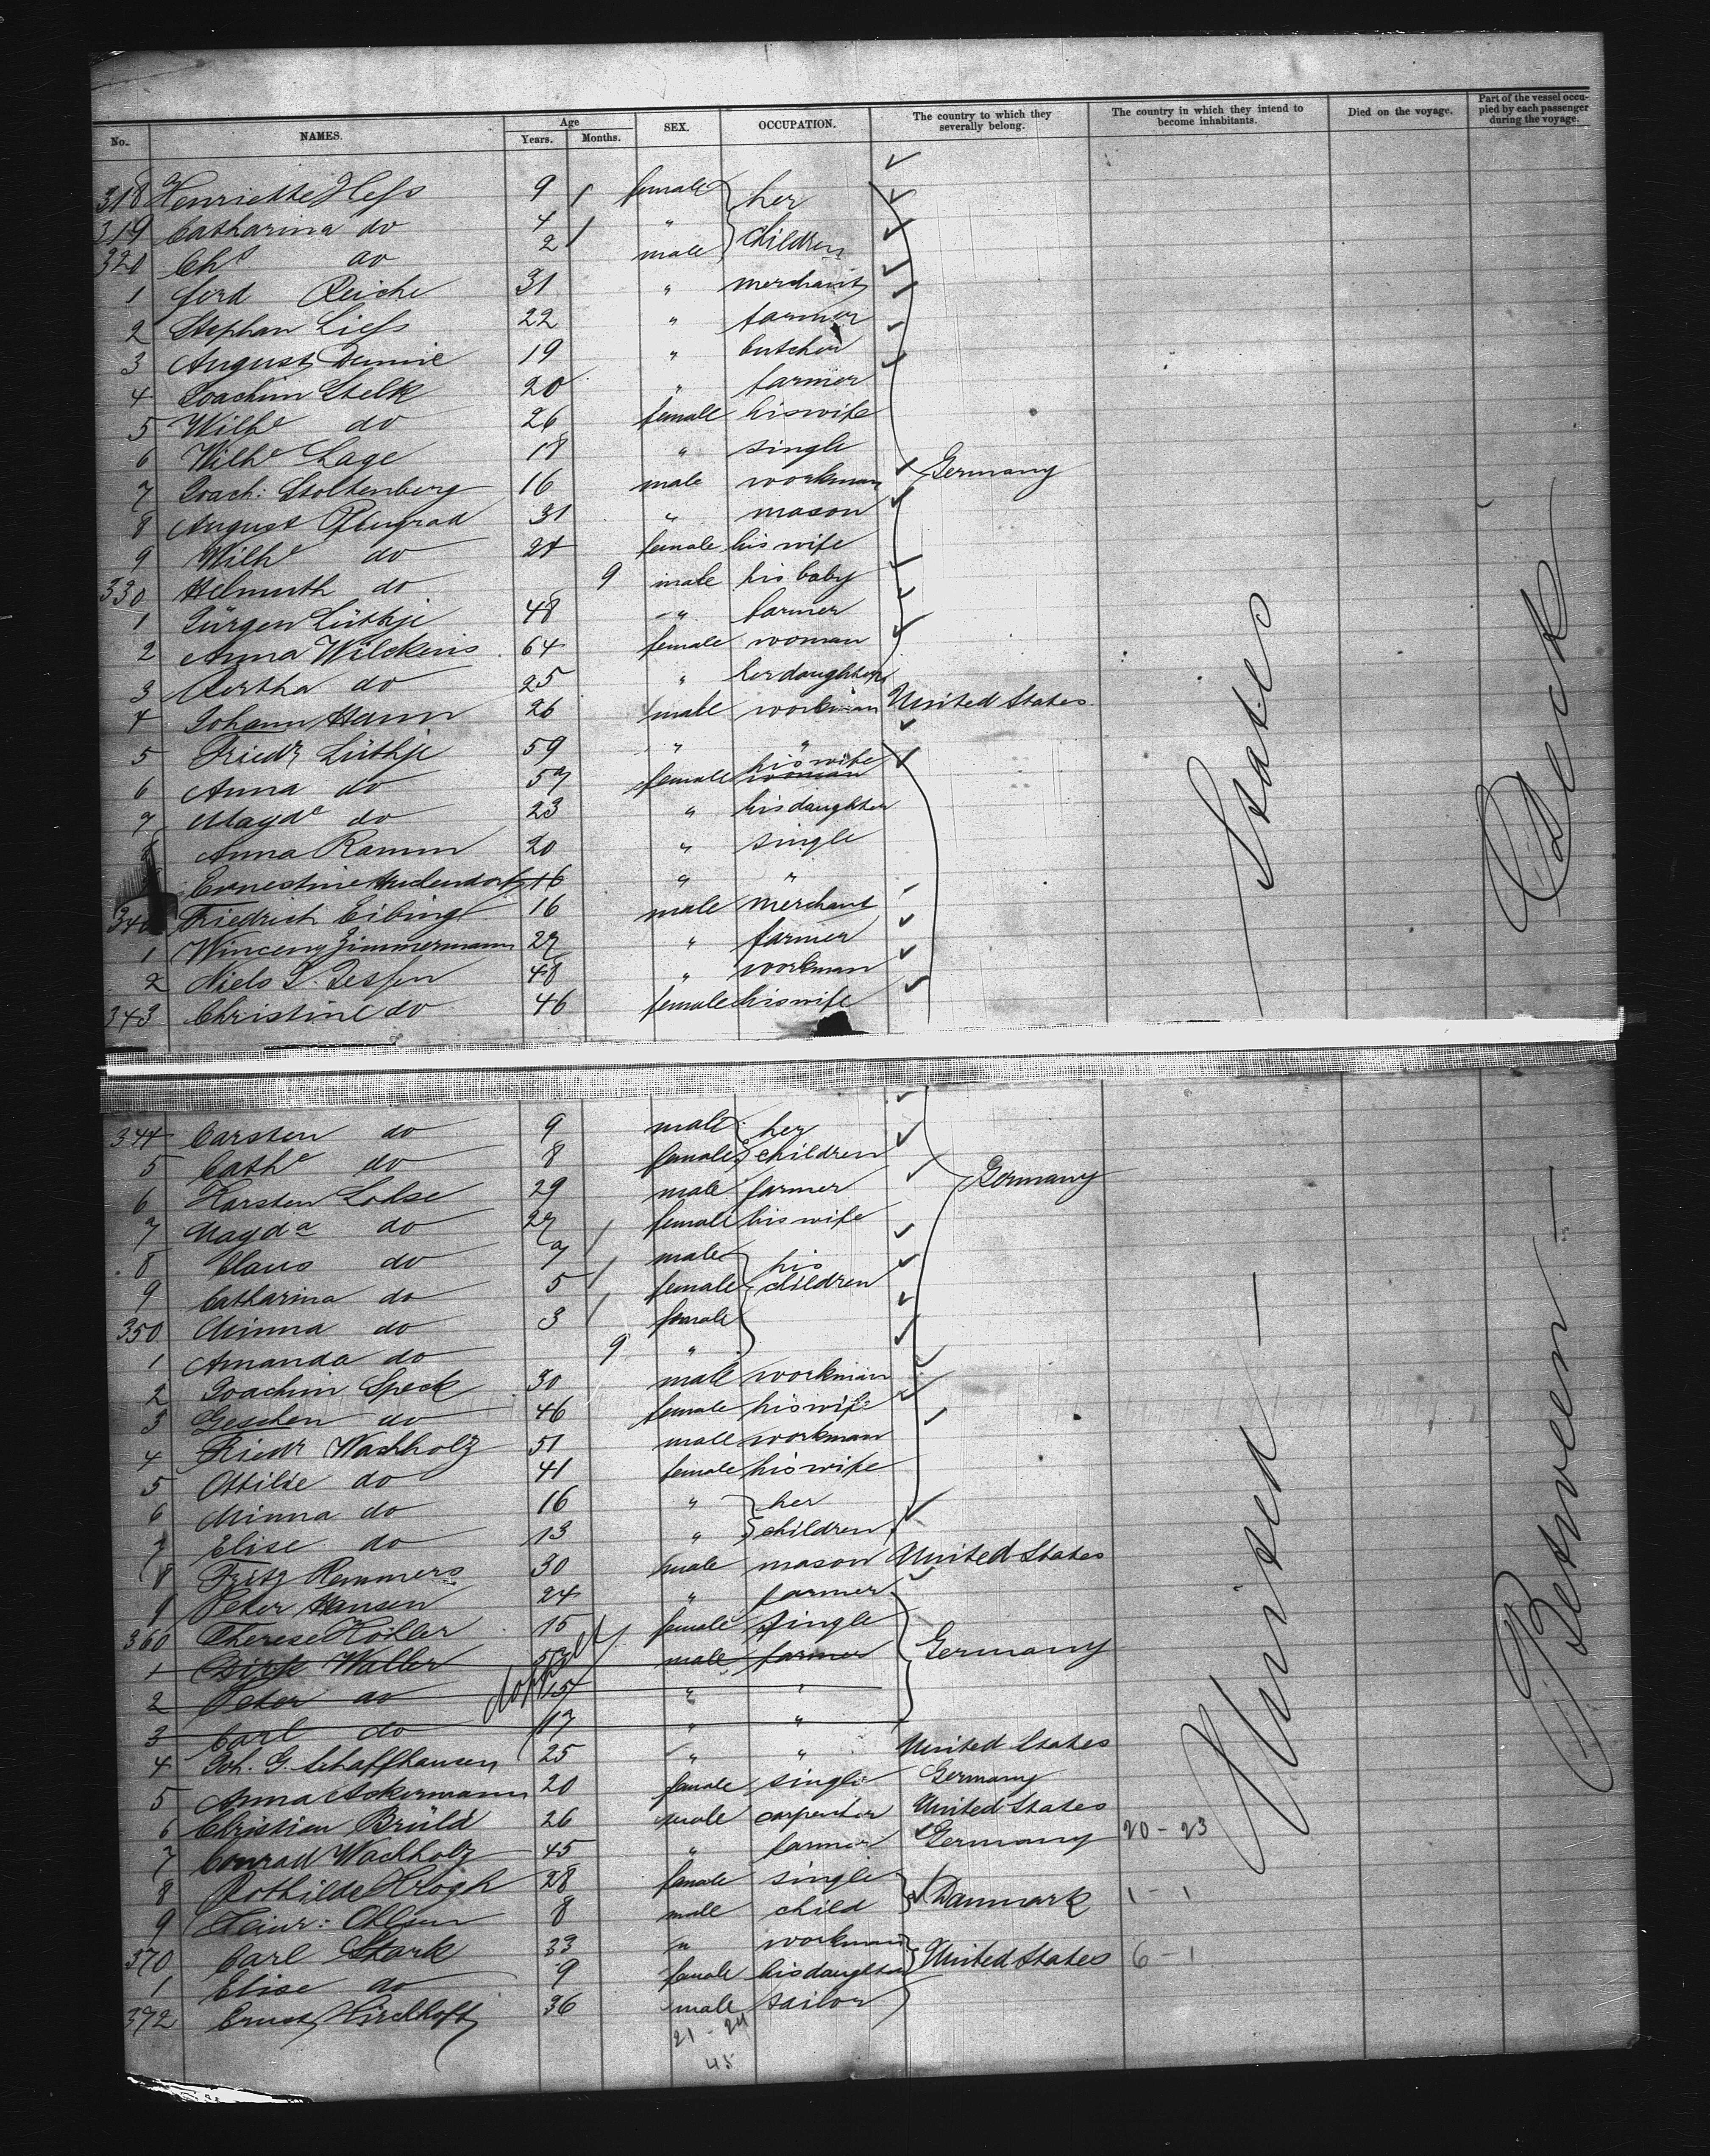 No. NAMES. Age Years. Months. SEX. OCCUPATION. The country to which they severally belong. The country in which they intend to become inhabitants. Died on the voyage. Part of the vessel occupied by each passenger during the voyage.
318 Henriette Hess 9 female her
319 Catharina do 4 " children
320 Chs do 2 male
1 Ferd Reiche 31 " merchant
2 Stephan Liess 22 " farmer
3 August 19 " butcher
4 Joachim Stelk 20 " farmer
5 Wilhe do 26 female his wife
6 Wilhe Lage 18 " single
7 Joach: Stoltenberg 16 male workman Germany
8 August 31 " mason
9 Wilhe do 24 female his wife
330 Helmuth do 9 male his baby
1 Jürgen Lüthje 48 " farmer
2 Anna Wilckens 64 female woman
3 Bertha do 25 " her daughter
4 Johann Hamm 26 male workman United States
5 Friedr Lüthje 59 " "
6 Anna do 57 female his wife woman
7 Magde do 23 " his daughter
8 Anna Ramm 20 " single
Ernestine 16 " "
340 Friedrich Eibing 16 male merchant
1 Winceny Zimmermann 27 " farmer
2 Niels J. Jessen 48 " workman
343 Christine do 46 female his wife
344 Carsten do 9 male her
5 Cathe do 8 female children
6 Karsten Lohse 29 male farmer Germany
7 Magda do 27 female his wife
8 Claus do 7 male his
9 Catharina do 5 female children
350 Minna do 3 female
1 Amanda do 9 "
2 Joachim Speck 30 male workman
3 Geschen do 46 female his wife
4 Friedr Wachholz 51 male workman
5 Ottilie do 41 female his wife
6 Minna do 16 " her
7 Elise do 13 " children
8 Fritz Remmers 30 male mason United States
9 Peter Hansen 24 " farmer
360 Therese Köhler 15 female single Germany
1 Dirk Waller male farmer
2 Peter do 15 " "
3 Carl do 17 " "
4 Joh. G. Schaffhausen 25 " " United States
5 Anna Ackermann 20 female single Germany
6 Christian Brüld 26 male carpenter United States
7 Conrad Wachholz 45 " farmer Germany 20 - 23
8 Bothilde Krogh 28 female single
9 Heinr: Ohlsen 8 male child Danmark 1 - 1
370 Carl Stark 33 " workman
1 Elise do 9 female his daughter United States 6 - 1
372 Ernst Kirchhoff 36 male tailor
21 - 24
45
United States
Between Deck